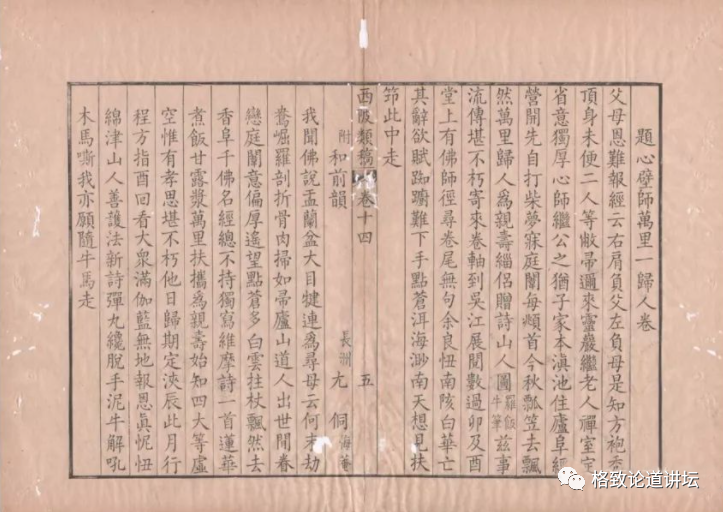 題心壁師萬里一歸人卷
父母恩難報經云右肩負父左負母是知方袍
頂身未使二人等敝帚邇來靈巖繼老人禪室
省意獨厚心師繼公之猶子家本滇池住廬阜經
營開先自打柴夢寐庭闈母頰首今秋瓢笠去飄
然萬里歸人為親壽緇侶贈詩山人圖羅飯牛筆茲事
流傳堪不朽寄來卷軸到吳江展閱數過卯及酉
堂上有佛師徑尋卷尾無句余良忸南陔白華亡
其辭欲賦踟躕難下手點蒼洱海渺南天想見扶
筇此中走
西陂類稿 卷十四 五
附和前韻 長洲尤侗悔菴
我聞佛說盂蘭盆大目犍連為尋母云何末劫
鴦崛羅剖折骨肉掃如帚廬山道人出世間眷
戀庭闈意偏厚遙望點蒼多白雲拄杖飄然去
香阜千佛名經總不持獨寫維摩詩一首蓮華
煮飯甘露漿萬里扶攜為親壽始知四大等虛
空惟有孝思堪不朽他日歸期定浹辰此月行
程方指酉回看大眾滿伽藍無地報恩真怩忸
綿津山人善護法新詩彈丸纔脫手泥牛解吼
木馬嘶我亦願隨牛馬走
格致论道讲坛